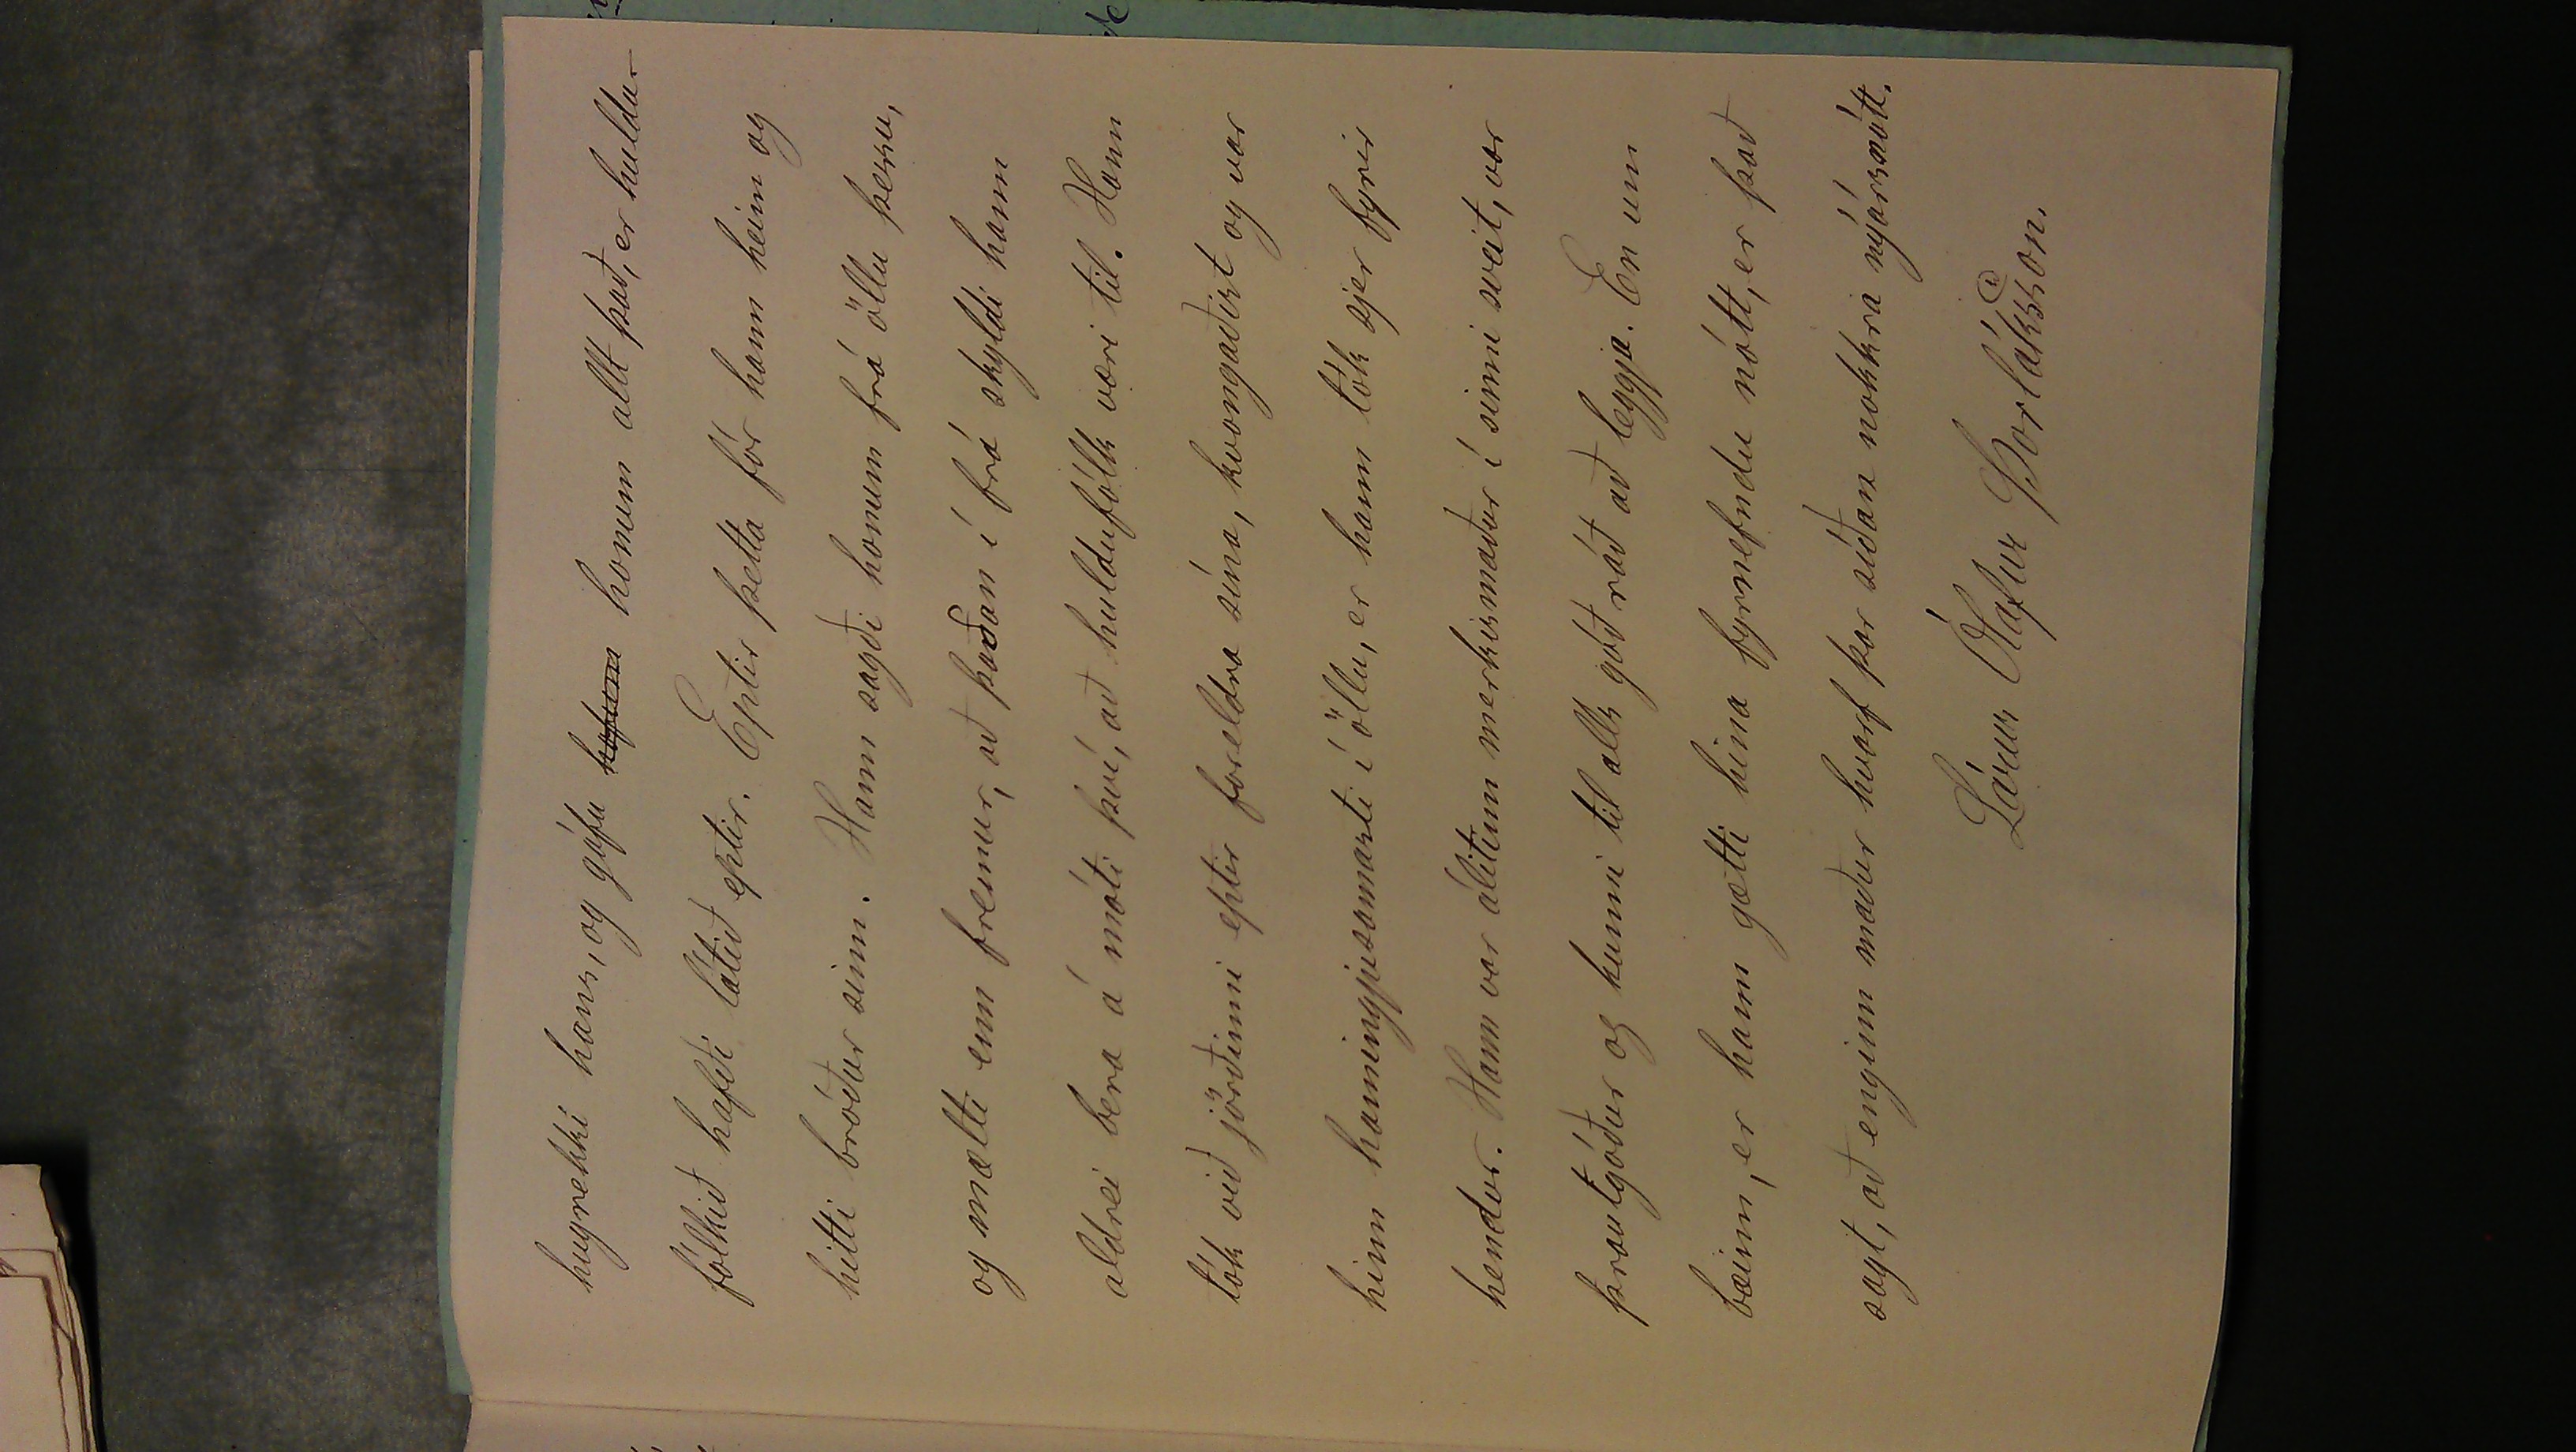 hugrekki hans, og gáfu honum allt það, er huldu-
fólkið hafði látið eptir. Eptir þetta fór hann heim og
hitti bróður sinn. Hann sagði honum frá öllu þessu,
og mælti enn fremur, að þaðan í frá skyldi hann
aldrei bera á móti því, að huldufólk væri til. Hann
tók við jörðinni eptir foreldra sína, kvongaðist og var
hinn hamingjusamasti í öllu, er hann tók sjer fyrir
hendur. Hann var álitinn merkismaður í sinni sveit, var
þrautgóður og kunni til alls góð ráð að leggja. En um
bæinn, er hann gætti hina fyrnefndu nótt, er það
sagt, að enginn maður hvarf þar síðan nokkra nýársnótt.
Lárus Ólafur Þorláksson.